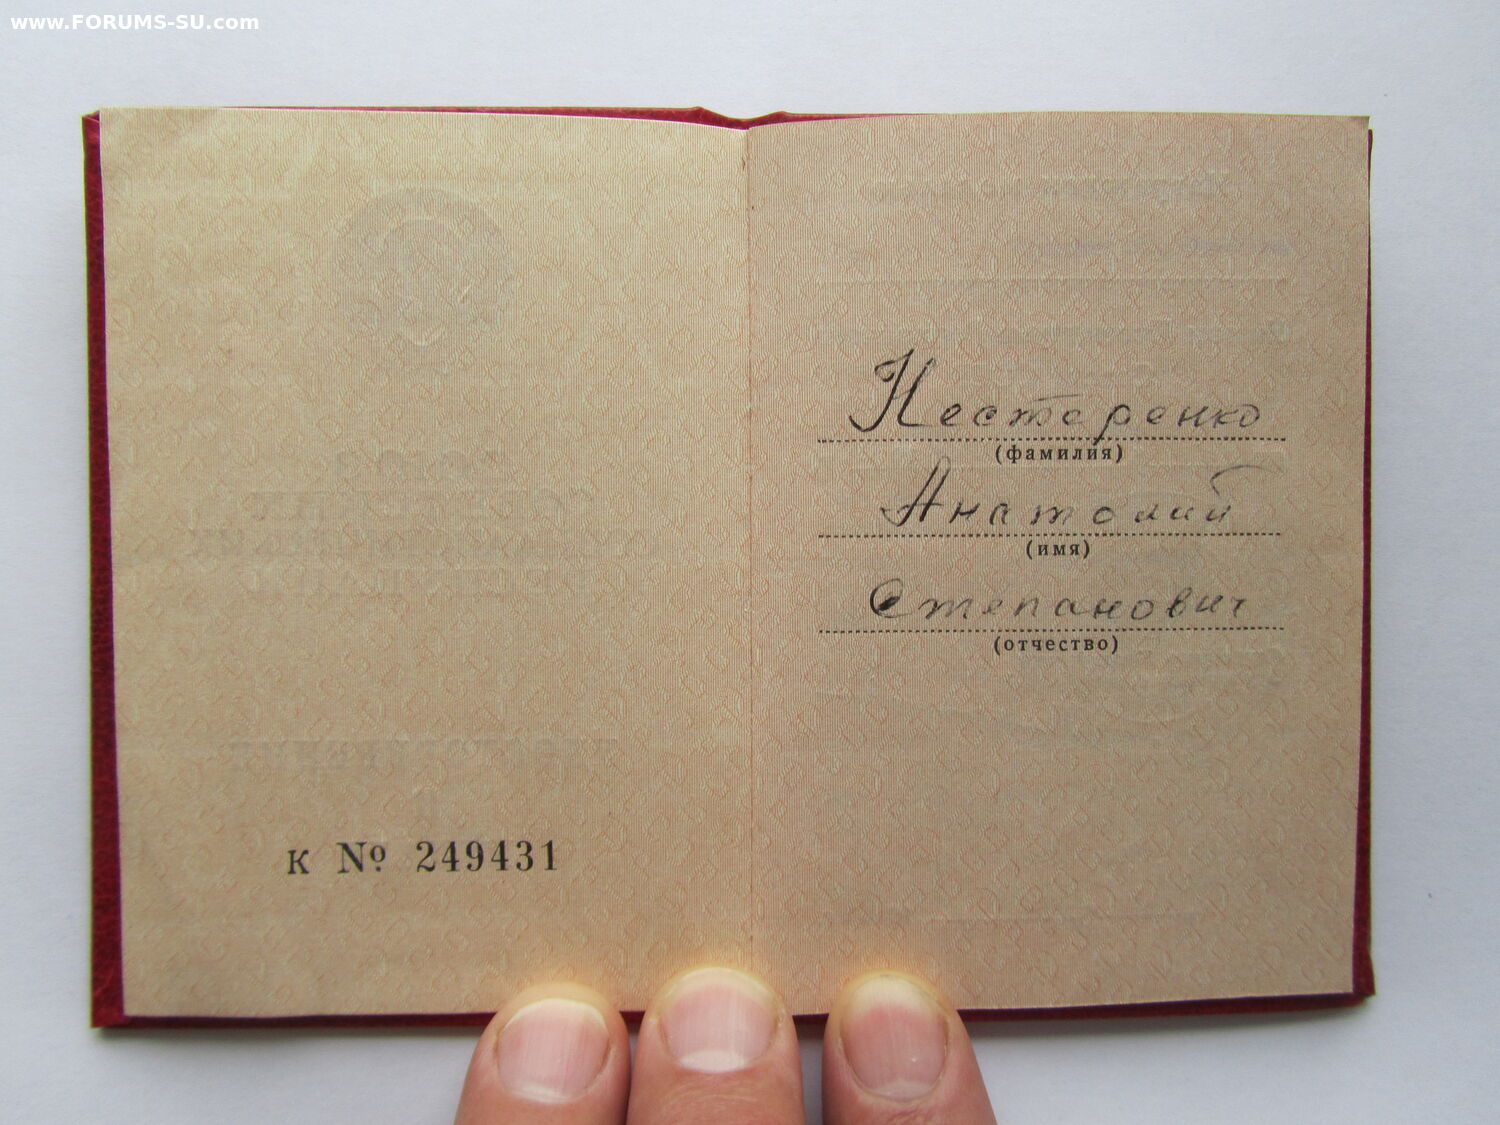 www.FORUMS-SU.com
К № 249431
Нестеренко
(фамилия)
Анатолий
(имя)
Степанович
(отчество)